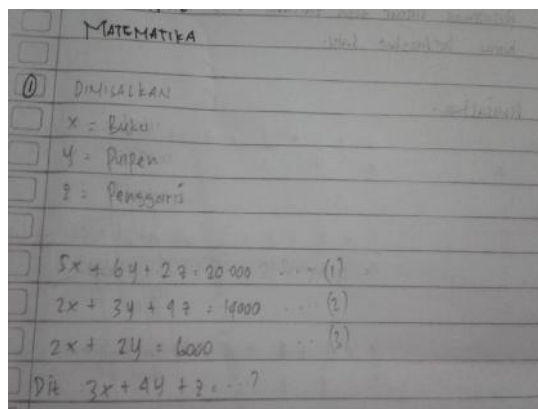 MATEMATIKA
① DIMISALKAN
x = Buku
y = Pulpen
z = Penggaris
5x + 6y + 2z = 20 000 .... (1)
2x + 3y + 4z = 14000 ... (2)
2x + 2y = 6000 ... (3)
Dit 3x + 4y + z = ...?